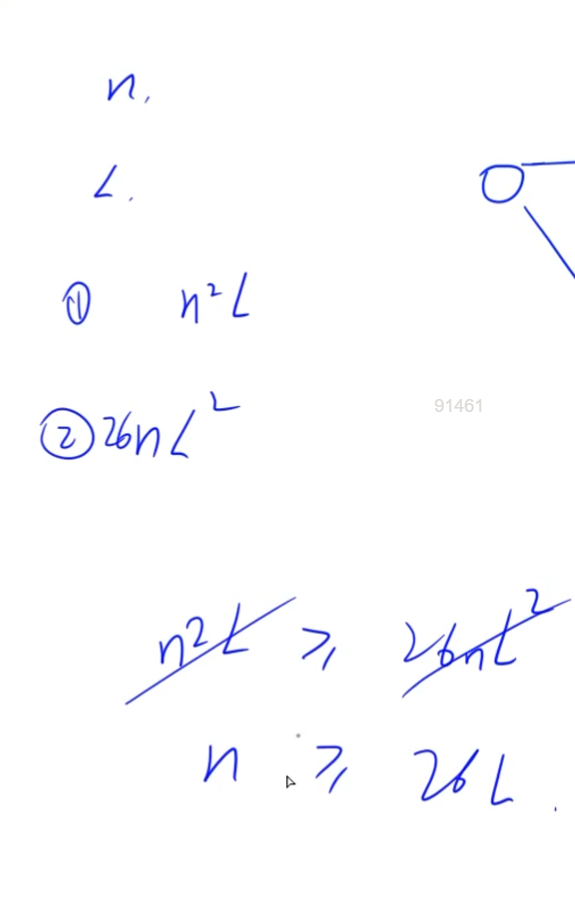 n.
L.
① n²L
② 26nL²
91461
n²L ≥ 26nL²
n ≥ 26L.